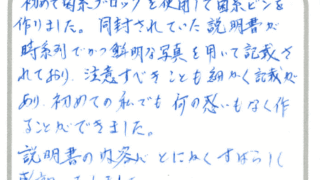 初めて菌糸ブロックを使用して菌糸ビンを
作りました。同封されていた説明書が
時系列でかつ鮮明な写真を用いて記載さ
れており、注意すべきことも細かく記載が
あり、初めての私でも何の愁いもなく作
ることができました。
説明書の内容がとにかくすばらしく